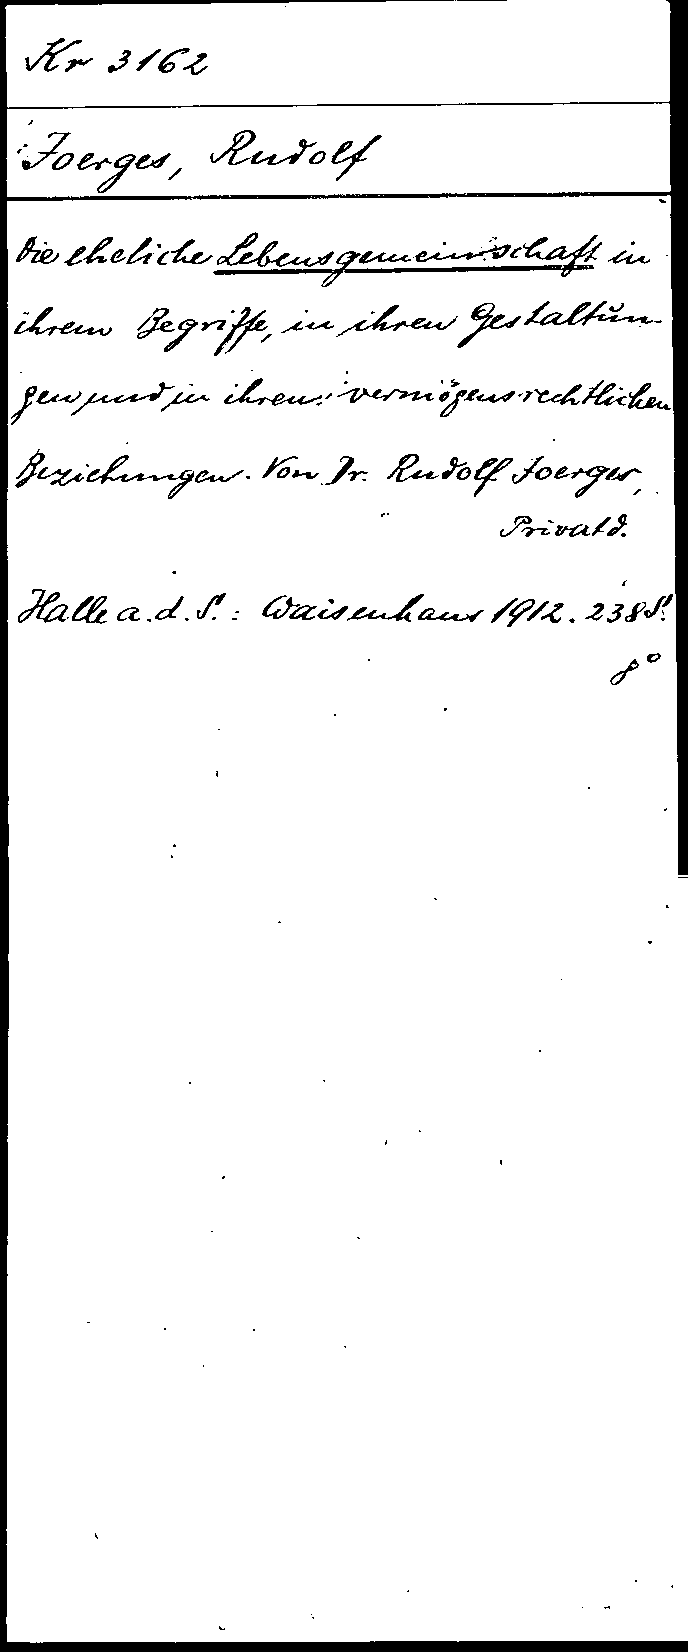 Kr 3162
Joerges, Rudolf
Die eheliche Lebensgemeinschaft in
ihrem Begriffe, in ihren Gestaltun-
gen und in ihren vermögensrechtlichen
Beziehungen. Von Dr. Rudolf Joerges,
Privatd.
Halle a. d. S. : Waisenhaus 1912. 238 S.
8°